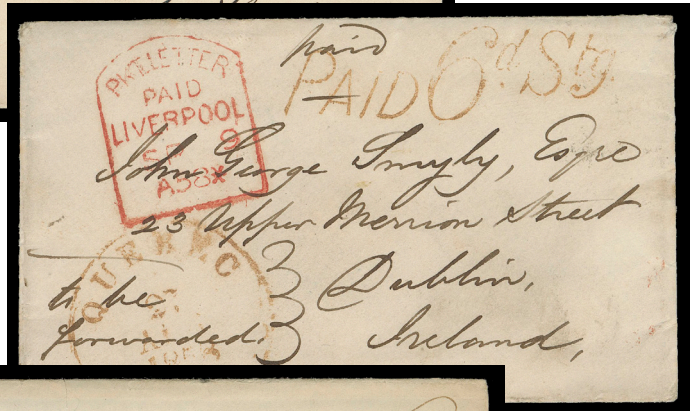 paid
PAID 6d Stg.
PKT LETTER
PAID
LIVERPOOL
SP 8
A58X
John George Smyly, Esqre
23 Upper Merrion Street
Dublin,
Ireland,
to be
forwarded.
QUEBEC